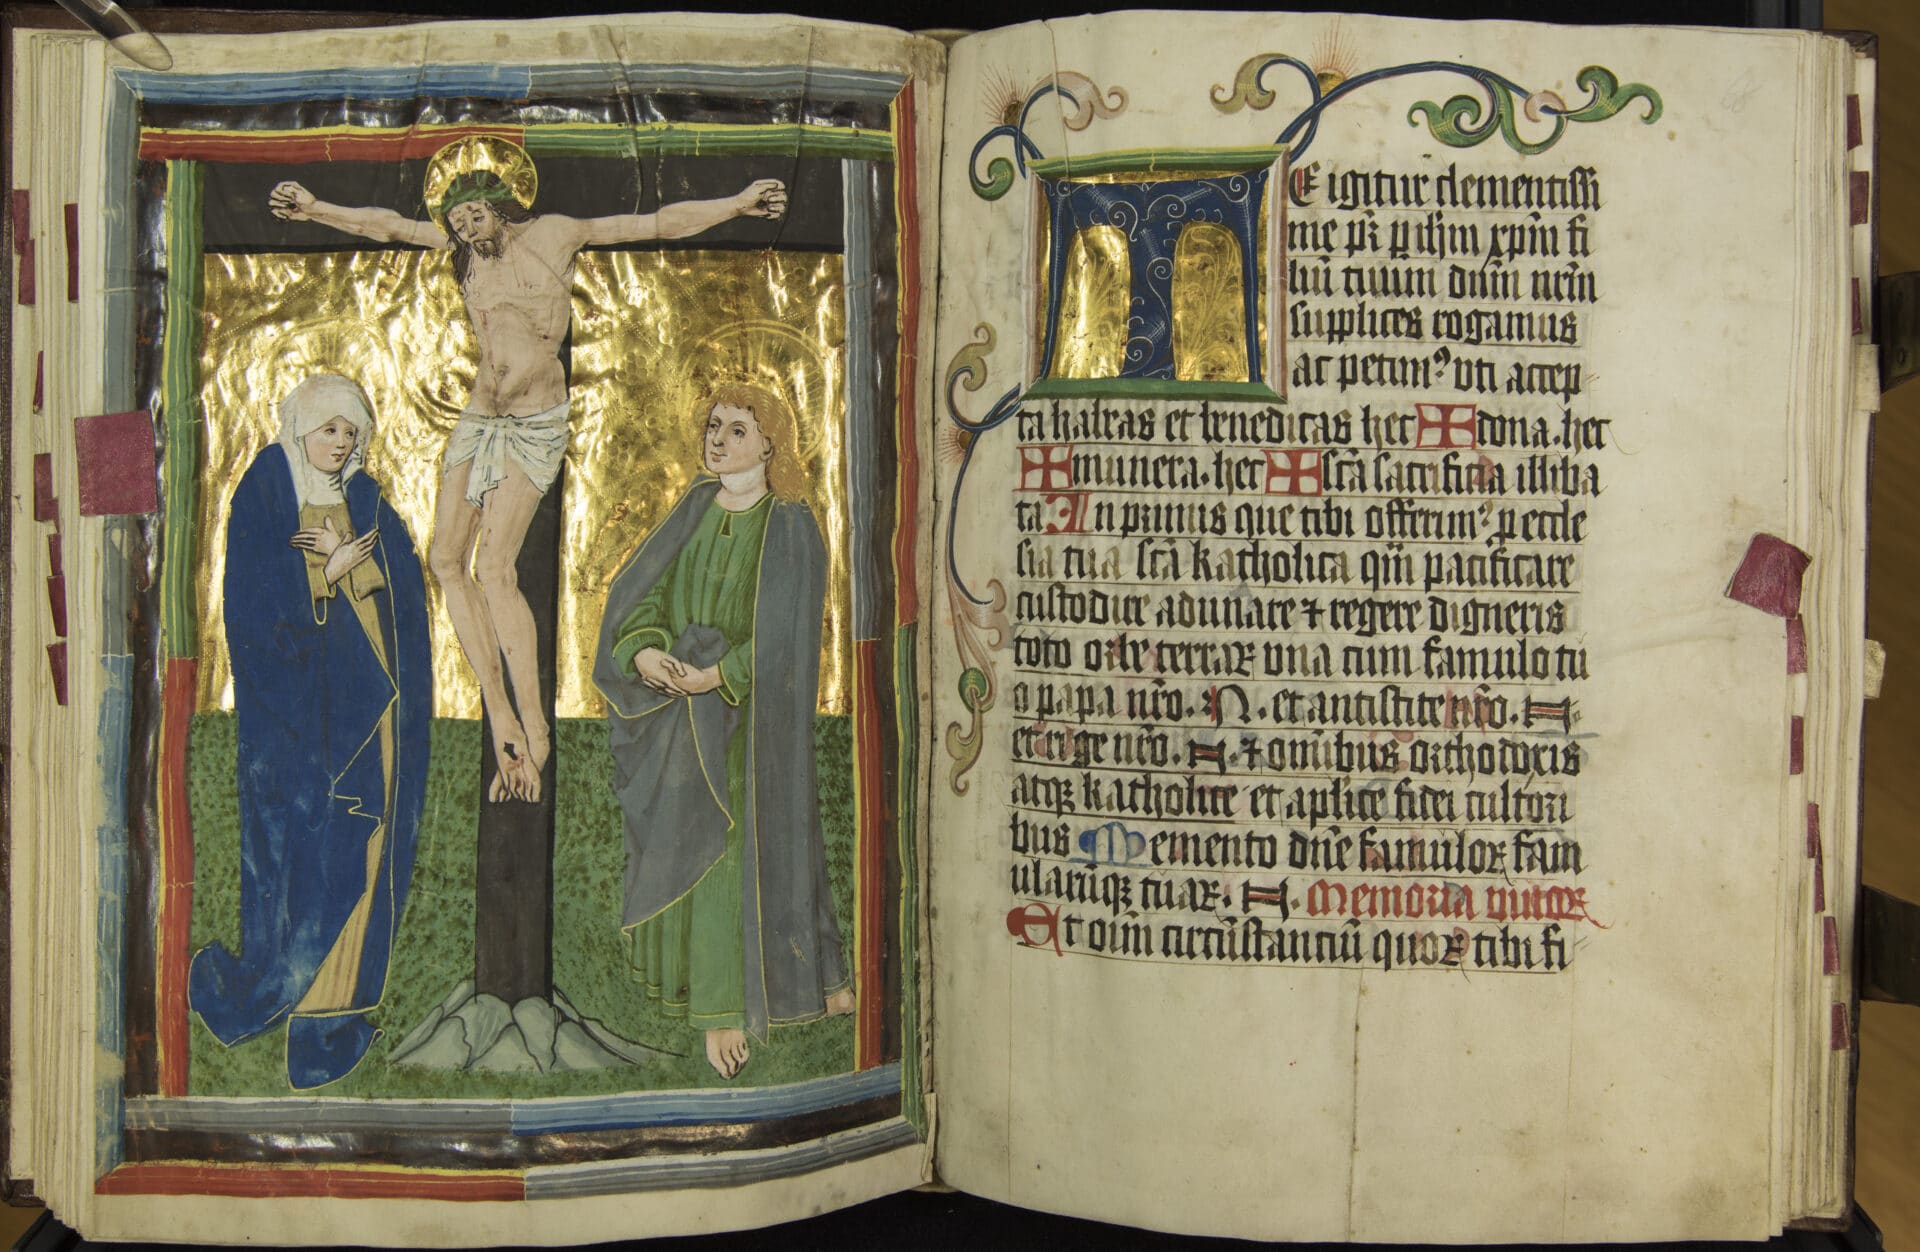 68
TE igitur clementissi
me pr̄ p ihm xpm̄ fi
liū tuum dnm̄ nrm̄
supplices rogamus
ac petimꝰ uti accep
ta habeas et benedicas hec ✠ dona. hec
✠ munera. hec ✠ scā sacrificia illiba
ta In primis que tibi offerimꝰ p eccle
sia tua scā katholica qm̄ pacificare
custodire adunare ⁊ regere digneris
toto orbe terraꝝ una cum famulo tu
o papa nr̄o. N. et antistite nr̄o. N.
et rege nr̄o. N. ⁊ om̄ibus orthodoxis
atqꝫ katholice et aplice fidei cultori
bus Memento dn̄e famuloꝝ fam
ularūqꝫ tuaꝝ. N. Memoria vivoꝝ
Et oīm circūstanciū quoꝝ tibi fi